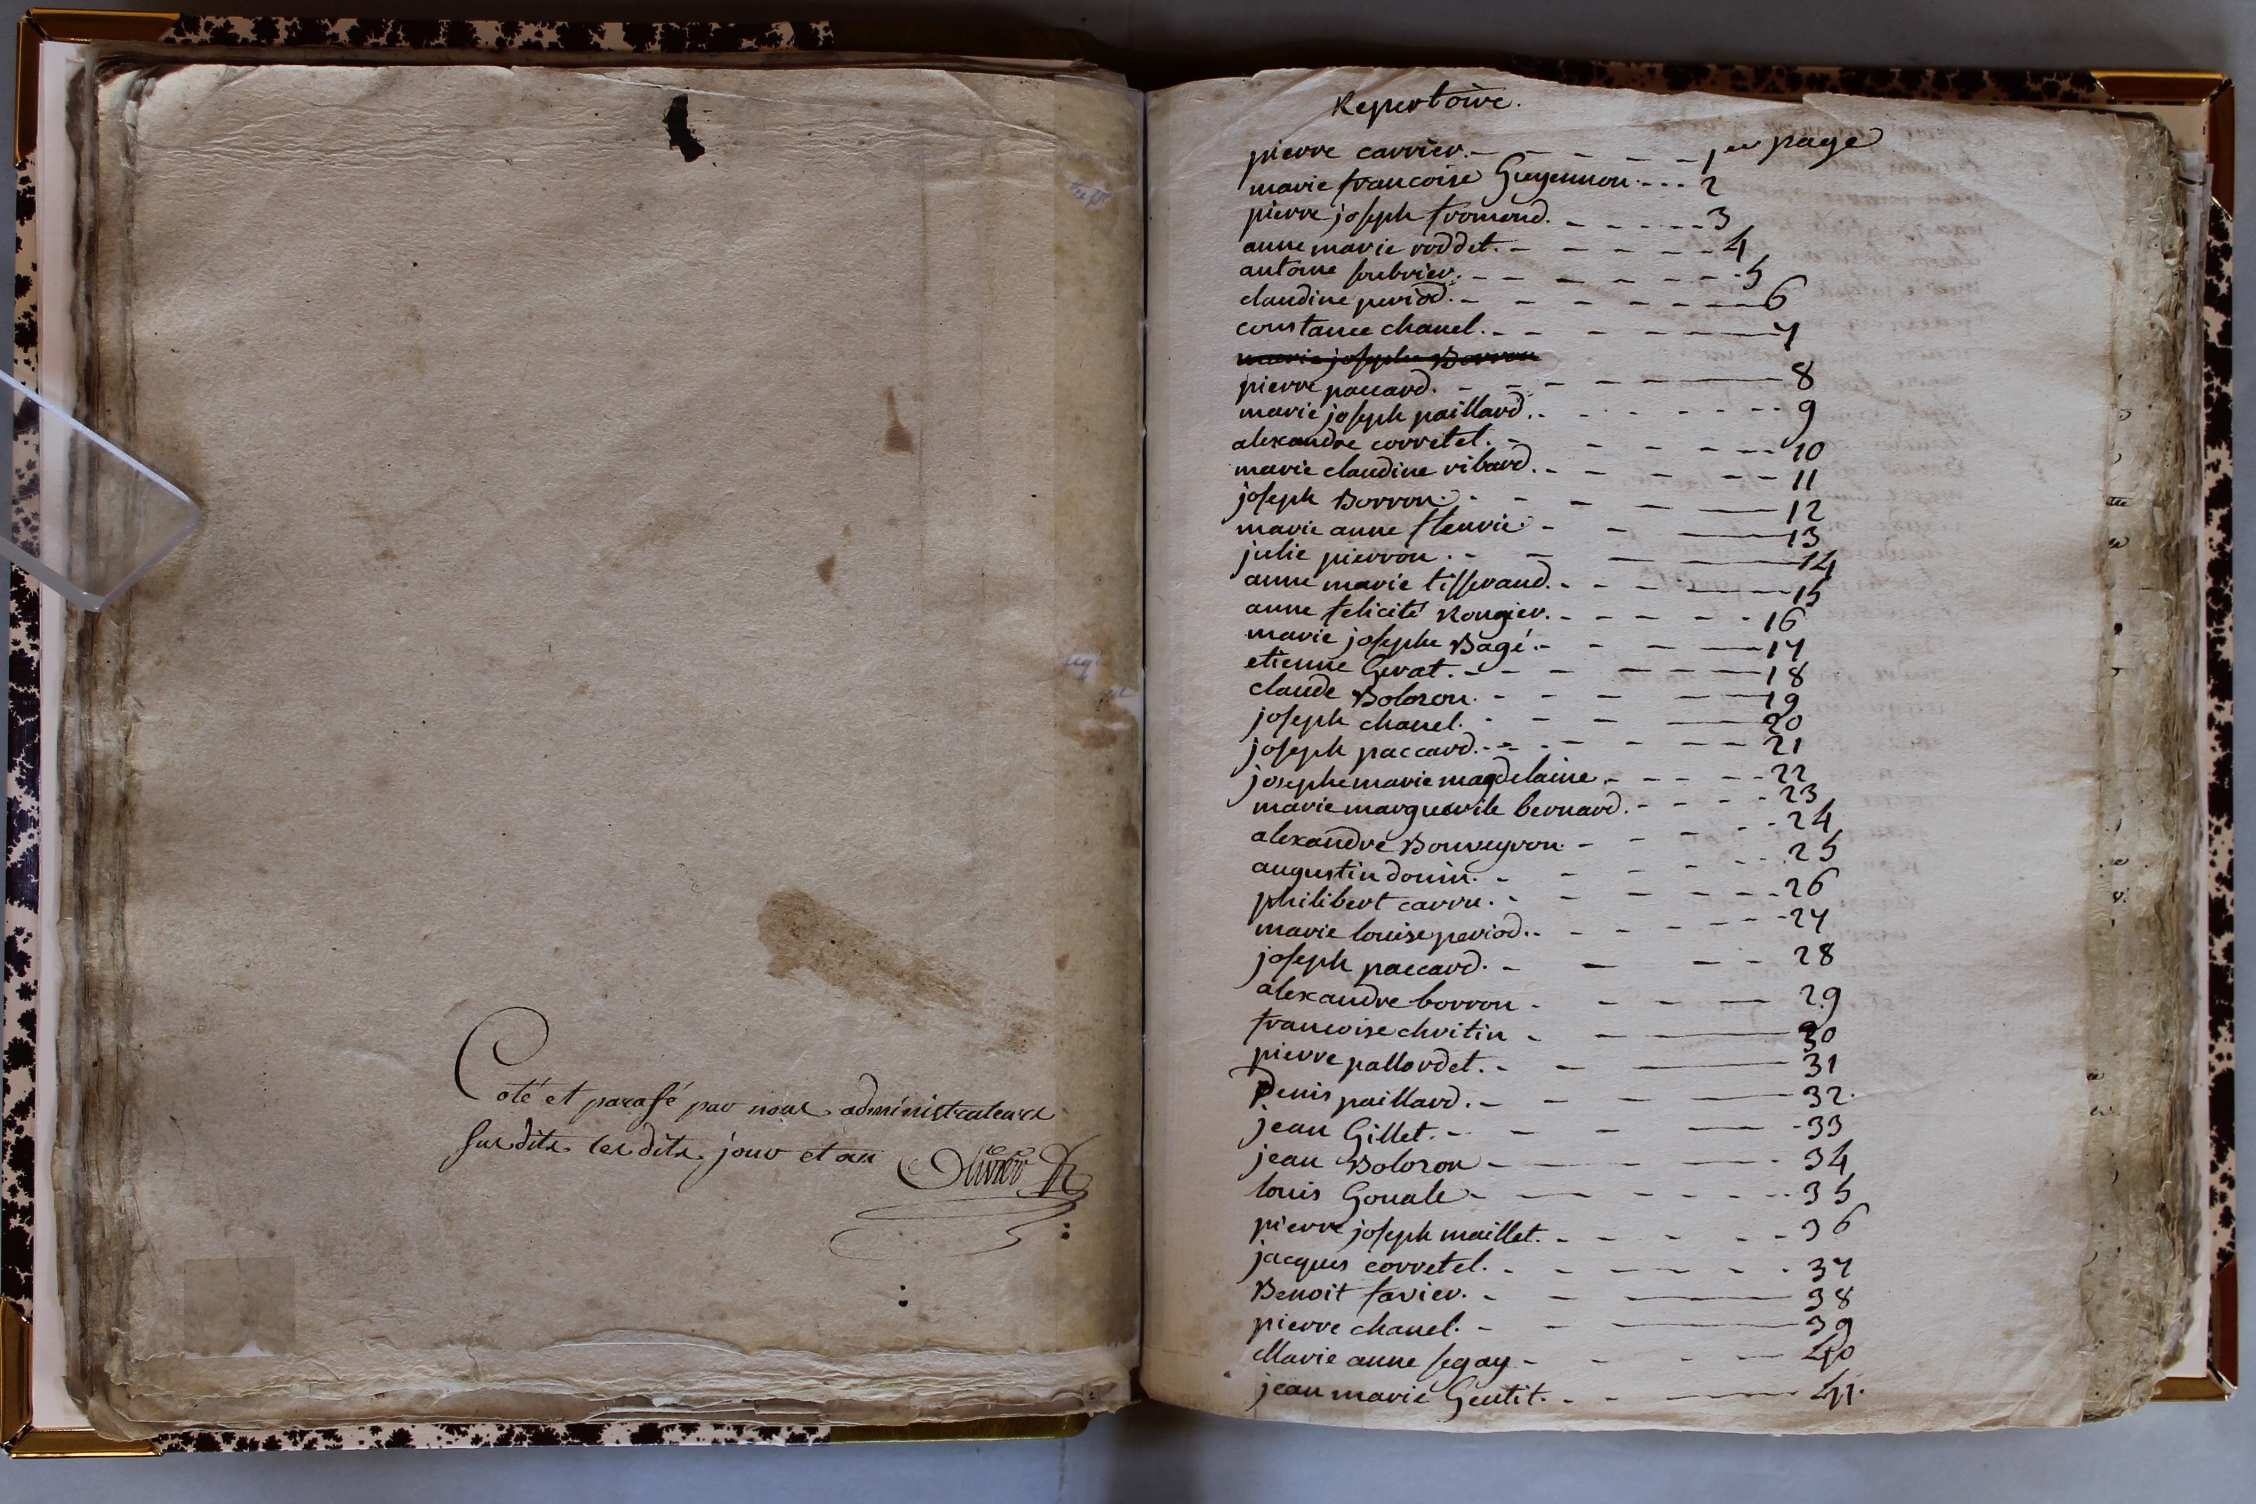 Coté et parafé par nous administrateurs
susdits les dits jour et an Olivier
Repertoire.
pierre carrier. - - - - - - 1er page
marie francoise Guyennon - - - 2
pierre joseph fromond. - - - - - 3
anne marie roddet. - - - - - - 4
antoine soubrier. - - - - - - 5
claudine period. - - - - - - 6
constance chanel. - - - - - 7
marie josephe Borron
pierre paccard. - - - - - 8
marie joseph paillard. - - - - - - 9
alexandre corretel. - - - - - 10
marie claudine ribard. - - - - - 11
joseph Borron. - - - - - 12
marie anne fleurie. - - - 13
julie pierron. - - - 14
anne marie tisserand. - - - - 15
anne felicité Rougier. - - - - - 16
marie josephe Bagé. - - - - 17
etienne Gerat. - - - - - - 18
claude Bolozon. - - - - - 19
joseph chanel. - - - - 20
joseph paccard. - - - - - - 21
josephe marie magdelaine. - - - - - 22
marie marguerite bernard. - - - - 23
alexandre Bouveyron - - - - - 24
augustin donin. - - - - - - 25
philibert carru. - - - - - - 26
marie louise period. - - - - - - 27
joseph paccard. - - - - 28
alexandre borron - - - - 29
francoise chritin - - - 30
pierre pallordet. - - - 31
Denis paillard. - - - - 32.
jean Gillet. - - - - - 33
jean Bolozon - - - - - 34
louis Gouale - - - - - - 35
pierre joseph maillet. - - - - - - 36
jacques corretel. - - - - - - 37
Benoit favier. - - - 38
pierre chanel. - - - 39
Marie anne segay - - - - 40
jean marie Gentit. - - - 41.